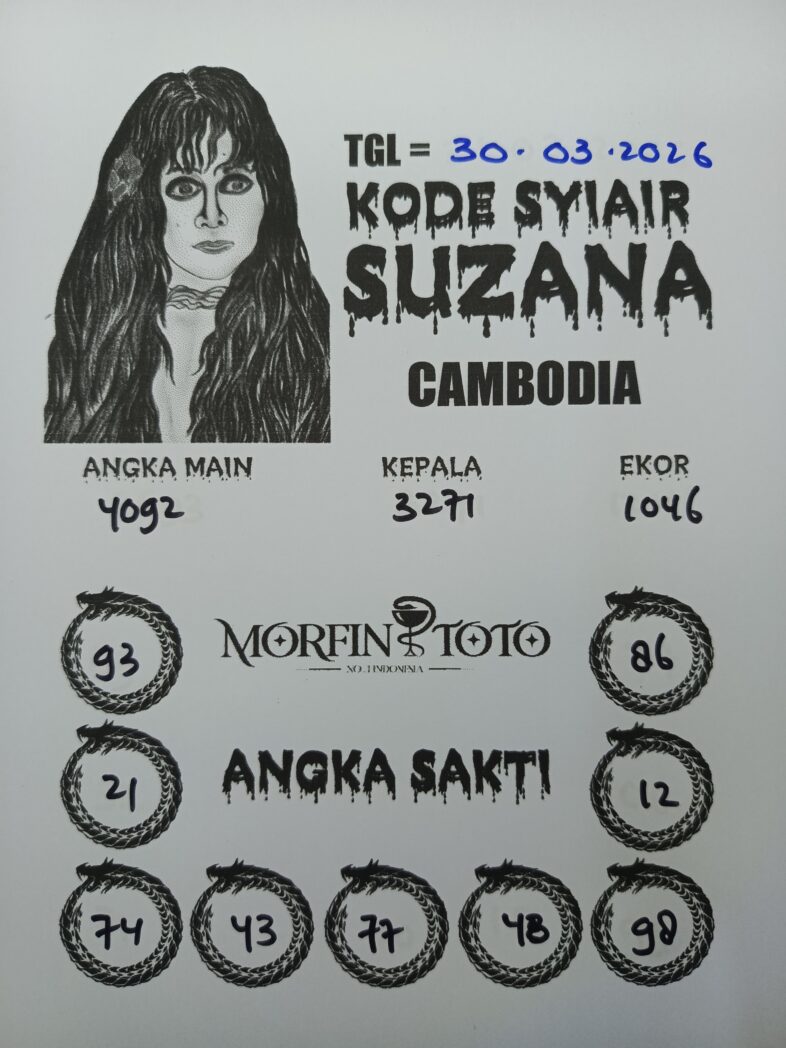 TGL = 30.03.2026
KODE SYIAIR
SUZANA
CAMBODIA
ANGKA MAIN KEPALA EKOR
4092 3271 1046
MORFIN TOTO
NO.1 INDONESIA
93 86
ANGKA SAKTI
21 12
74 43 77 48 98